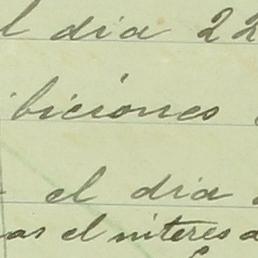 l dia 22
biciones
el dia
as el interes a